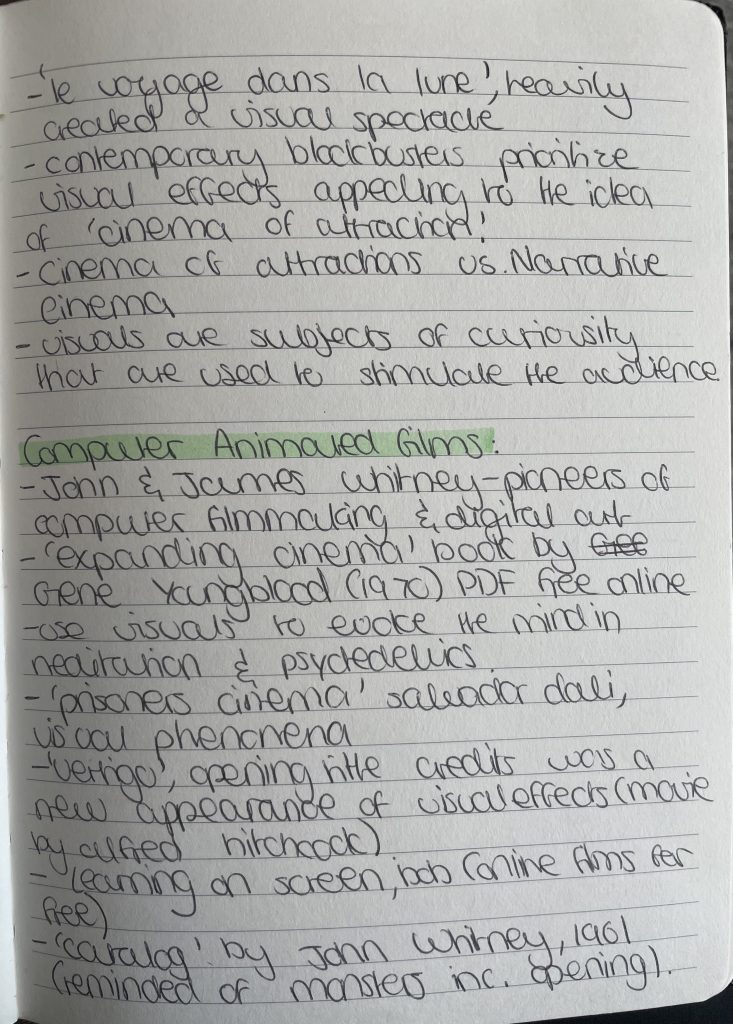 -'le voyage dans la lune', heavily
created a visual spectacle
- contemporary blockbusters prioritize
visual effects appealing to the idea
of 'cinema of attraction'
- cinema of attractions vs. Narrative
cinema
- visuals are subjects of curiousity
that are used to stimulate the audience
Computer Animated films:
- John & James whitney - pioneers of
computer filmmaking & digital art
- 'expanding cinema' book by
Gene Youngblood (1970) PDF free online
- use visuals to evoke the mind in
meditation & psychedelics
- 'prisoners cinema' salvador dali,
visual phenomena
- 'vertigo', opening title credits was a
new appearance of visual effects (movie
by alfred hitchcock)
- Learning on screen, bob (online films for
free)
- 'catalog' by John Whitney, 1961
(reminded of monsters inc. opening).